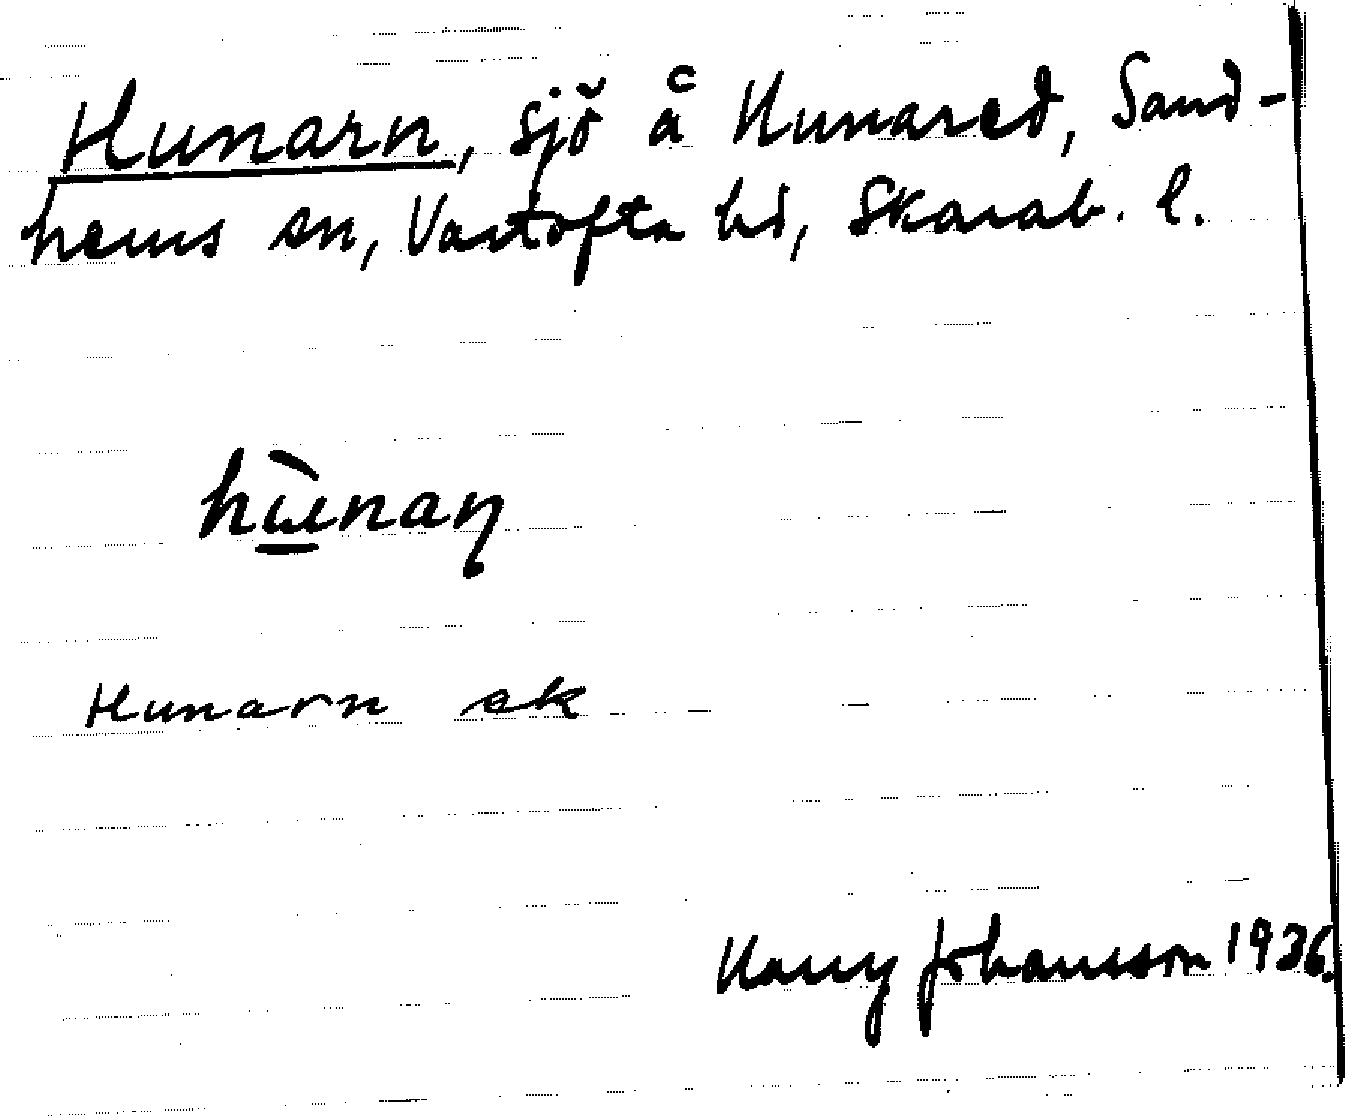 Hunarn, sjö å Hunared, Sand-
hems sn, Vartofta hd, Skarab. l.
hùnaɳ
Hunarn ek
Harry Johansson 1936.